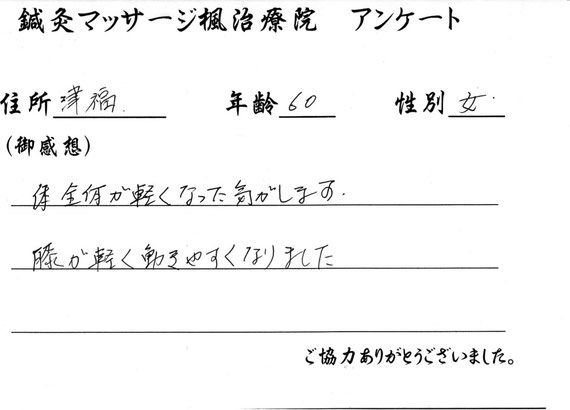 鍼灸マッサージ楓治療院 アンケート
住所 津福. 年齢 60 性別 女.
(御感想)
体全体が軽くなった気がします.
膝が軽く動きやすくなりました
ご協力ありがとうございました。